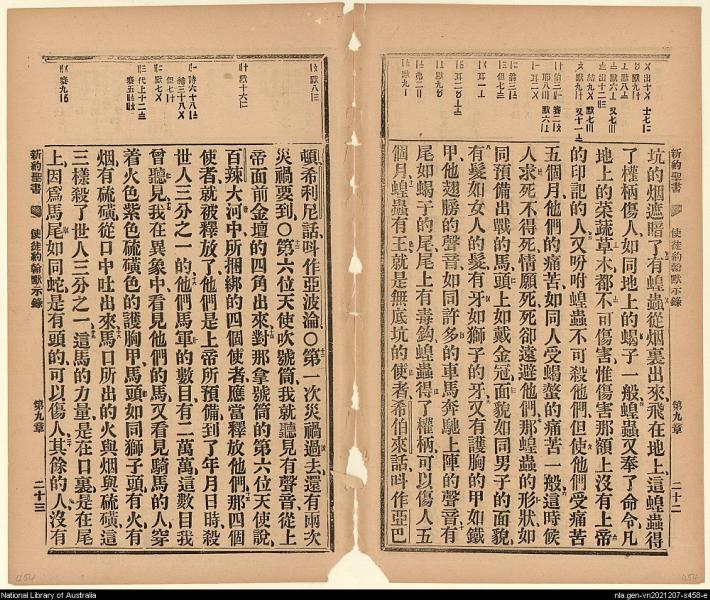 新約聖書
使徒約翰默示錄
第九章
二十二
坑的烟遮暗了有蝗蟲從烟裏出來飛在地上這蝗蟲得
了權柄傷人如同地上的蝎子一般蝗蟲又奉了命令凡
地上的菜蔬草木都不可傷害惟傷害那額上沒有上帝
的印記的人又吩咐蝗蟲不可殺他們但使他們受痛苦
五個月他們的痛苦如同人受蝎螫的痛苦一般這時候
人求死不得死情願死死却遠避他們那蝗蟲的形狀如
同預備出戰的馬頭上如戴金冠面貌如同男子的面貌
有髮如女人的髮有牙如獅子的牙又有護胸的甲如鐵
甲他翅膀的聲音如同許多的車馬奔馳上陣的聲音有
尾如蝎子的尾尾上有毒鈎蝗蟲得了權柄可以傷人五
個月蝗蟲有王就是無底坑的使者希伯來話呌作亞巴
頓希利尼話呌作亞波淪○第一次災禍過去還有兩次
災禍要到○第六位天使吹號筒我就聽見有聲音從上
帝面前金壇的四角出來對那拿號筒的第六位天使說
百辣大河中所捆綁的四個使者應當釋放他們那四個
使者就被釋放了他們是上帝所預備到了年月日時殺
世人三分之一的他們馬軍的數目有二萬萬這數目我
曾聽見我在異象中看見他們的馬又看見騎馬的人穿
着火色紫色硫磺色的護胸甲馬頭如同獅子頭有火有
烟有硫磺從口中吐出來馬口所出的火與烟與硫磺這
三樣殺了世人三分之一這馬的力量是在口裏是在尾
上因爲馬尾如同蛇是有頭的可以傷人其餘的人沒有
新約聖書
使徒約翰默示錄
第九章
二十三
National Library of Australia
nla.gen-vn2021207-s458-e